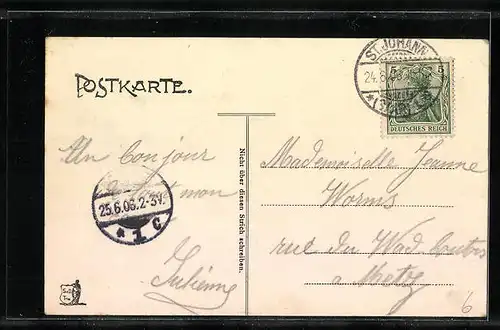 POSTKARTE.
ST. JOHANN
24.6.06
5 5
DEUTSCHES REICH
Un bonjour
de tout mon
25.6.06.2-3V.
* 1 c
Julienne
Nicht über diesen Strich schreiben.
Mademoiselle Jeanne
Worms
rue du Wad
a Metz
6